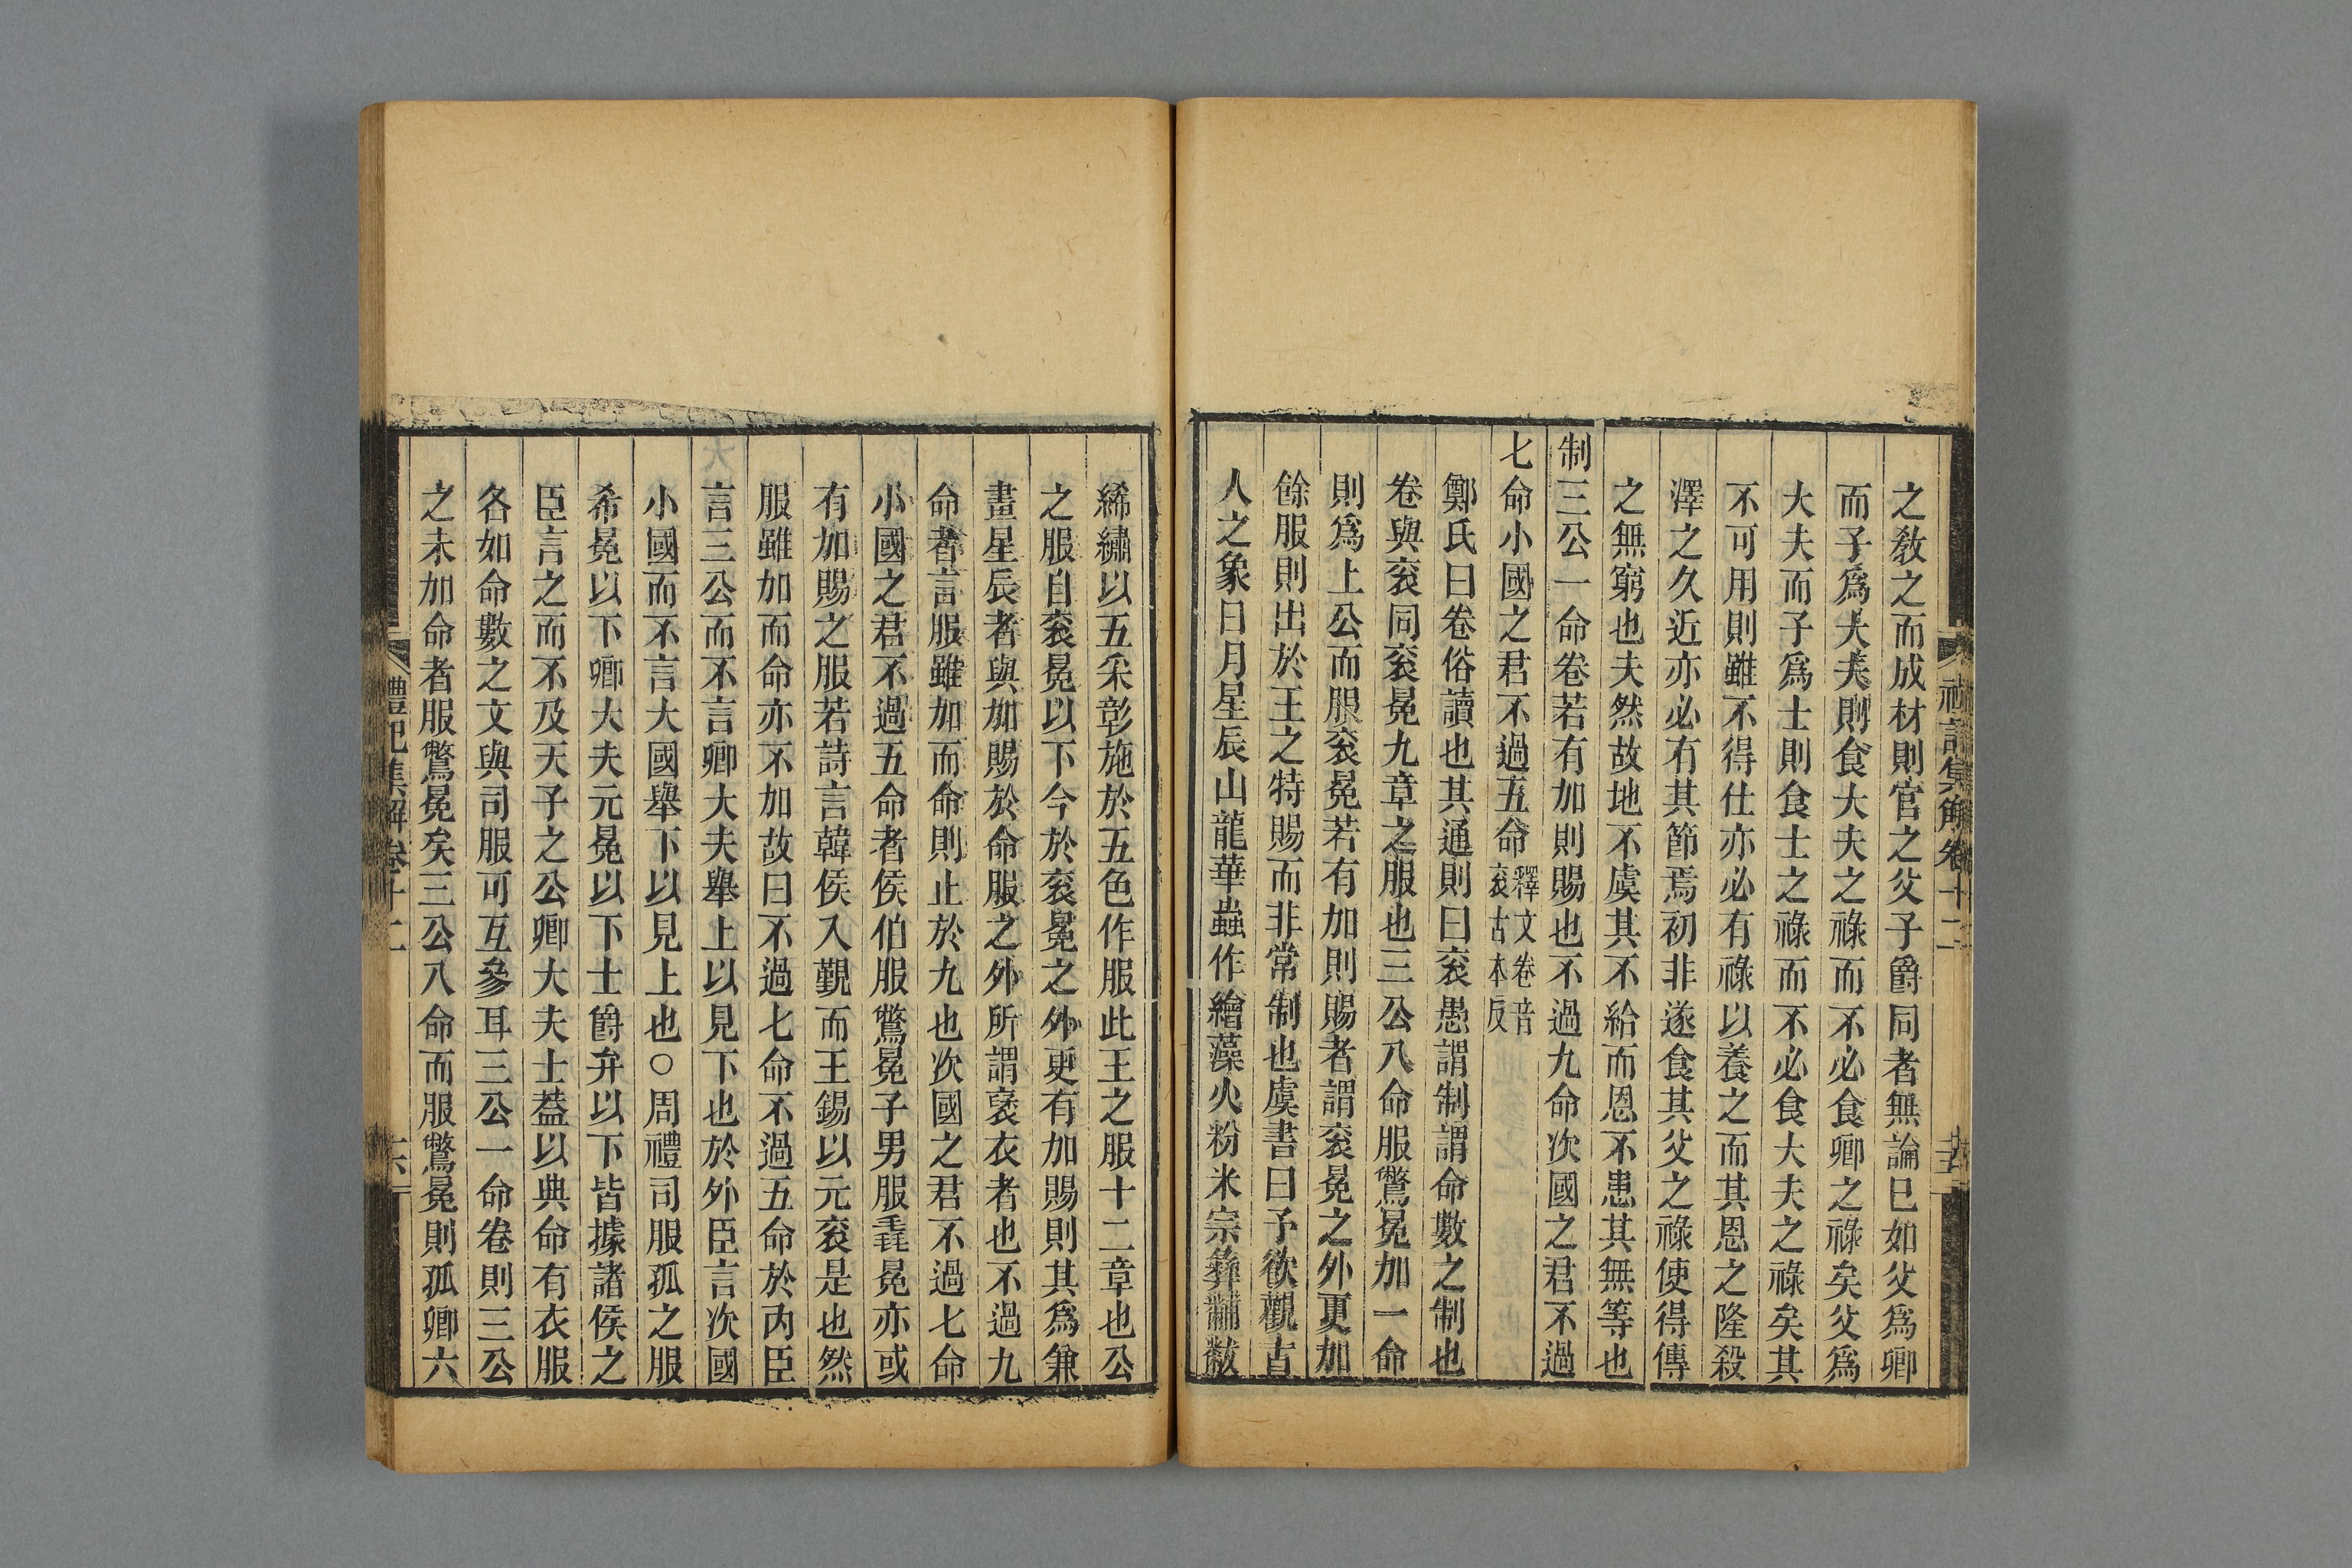 之敎之而成材則官之父子爵同者無論已如父爲卿
而子爲大夫則食大夫之祿而不必食卿之祿矣父爲
大夫而子爲士則食士之祿而不必食大夫之祿矣其
不可用則雖不得仕亦必有祿以養之而其恩之隆殺
澤之久近亦必有其節焉初非遂食其父之祿使得傳
之無窮也夫然故地不虞其不給而恩不患其無等也
制三公一命卷若有加則賜也不過九命次國之君不過
七命小國之君不過五命
釋文卷音
袞古本反
鄭氏曰卷俗讀也其通則曰袞愚謂制謂命數之制也
卷與袞同袞冕九章之服也三公八命服鷩冕加一命
則爲上公而服袞冕若有加則賜者謂袞冕之外更加
餘服則出於王之特賜而非常制也虞書曰予欲觀古
人之象日月星辰山龍華蟲作繪藻火粉米宗彝黼黻
絺繡以五采彰施於五色作服此王之服十二章也公
之服自袞冕以下今於袞冕之外更有加賜則其爲兼
畫星辰者與加賜於命服之外所謂襃衣者也不過九
命者言服雖加而命則止於九也次國之君不過七命
小國之君不過五命者侯伯服鷩冕子男服毳冕亦或
有加賜之服若詩言韓侯入覲而王錫以元袞是也然
服雖加而命亦不加故曰不過七命不過五命於內臣
言三公而不言卿大夫舉上以見下也於外臣言次國
小國而不言大國舉下以見上也○周禮司服孤之服
希冕以下卿大夫元冕以下士爵弁以下皆據諸侯之
臣言之而不及天子之公卿大夫士蓋以典命有衣服
各如命數之文與司服可互參耳三公一命卷則三公
之未加命者服鷩冕矣三公八命而服鷩冕則孤卿六
禮記集解卷十二